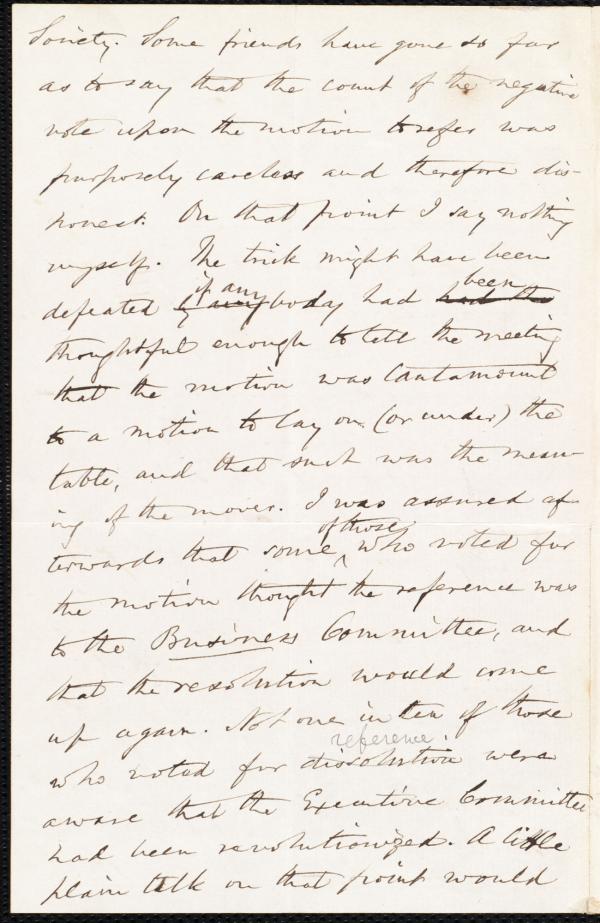 Society. Some friends have gone so far
as to say that the count of the negative
vote upon the motion to refer was
purposely careless and therefore dis-
honest. On that point I say nothing
myself. The trick might have been
if any been
defeated if anybody had had the
thoughtful enough to tell the meeting
that the motion was tantamount
to a motion to lay on (or under) the
table, and that such was the mean-
ing of the mover. I was assured af-
of those
terwards that some who voted for
the motion thought the reference was
to the Business Committee, and
that the resolution would come
up again. Not one in ten of those
reference.
who voted for dissolution were
aware that the Executive Committee
had been revolutionized. A little
plain talk on that point would